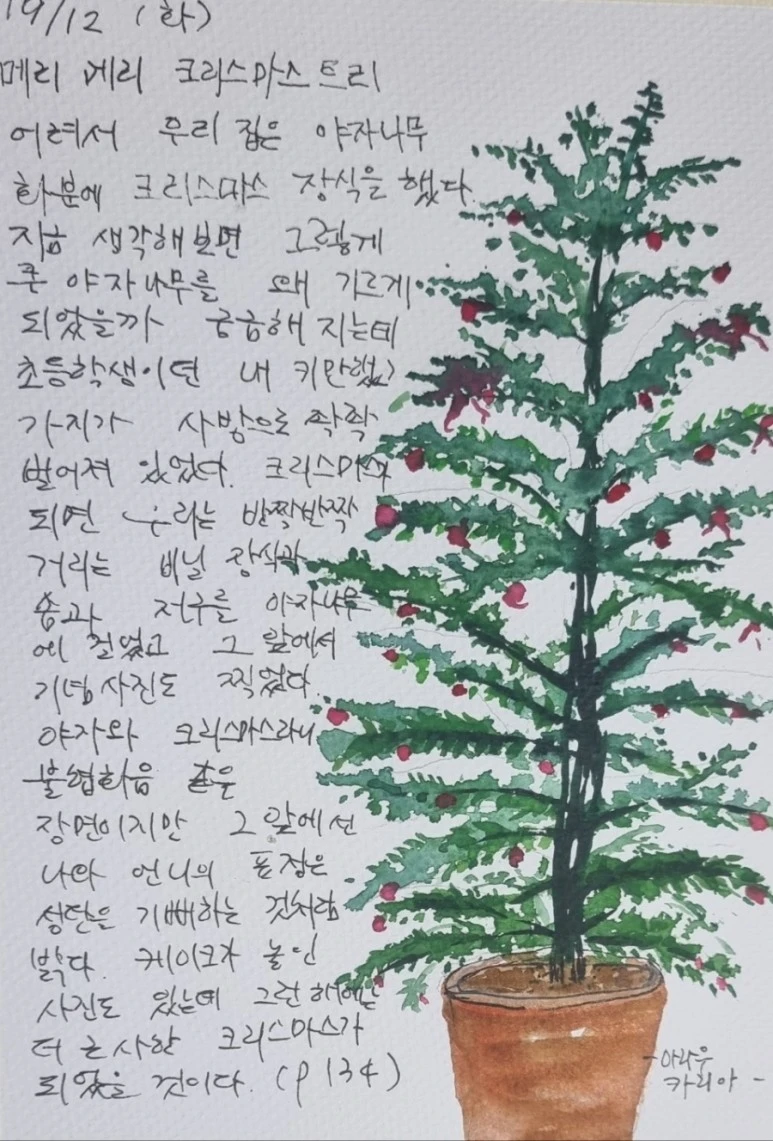 19/12 (화)
메리 메리 크리스마스 트리
어려서 우리 집은 야자나무
화분에 크리스마스 장식을 했다.
지금 생각해보면 그렇게
큰 야자나무를 왜 기르게
되었을까 궁금해 지는데
초등학생이던 내 키만했고
가지가 사방으로 쫙쫙
벌어져 있었다. 크리스마스가
되면 우리는 반짝반짝
거리는 비닐 장식과
솜과 전구를 야자나무
에 걸었고 그 앞에서
기념사진도 찍었다.
야자와 크리스마스라니
불협화음 같은
장면이지만 그 앞에 선
나와 언니의 표정은
성탄은 기뻐하는 것처럼
밝다. 케이크가 놓인
사진도 있는데 그런 해에는
더 근사한 크리스마스가
되었을 것이다. (p 134)
-아라우
카리아-